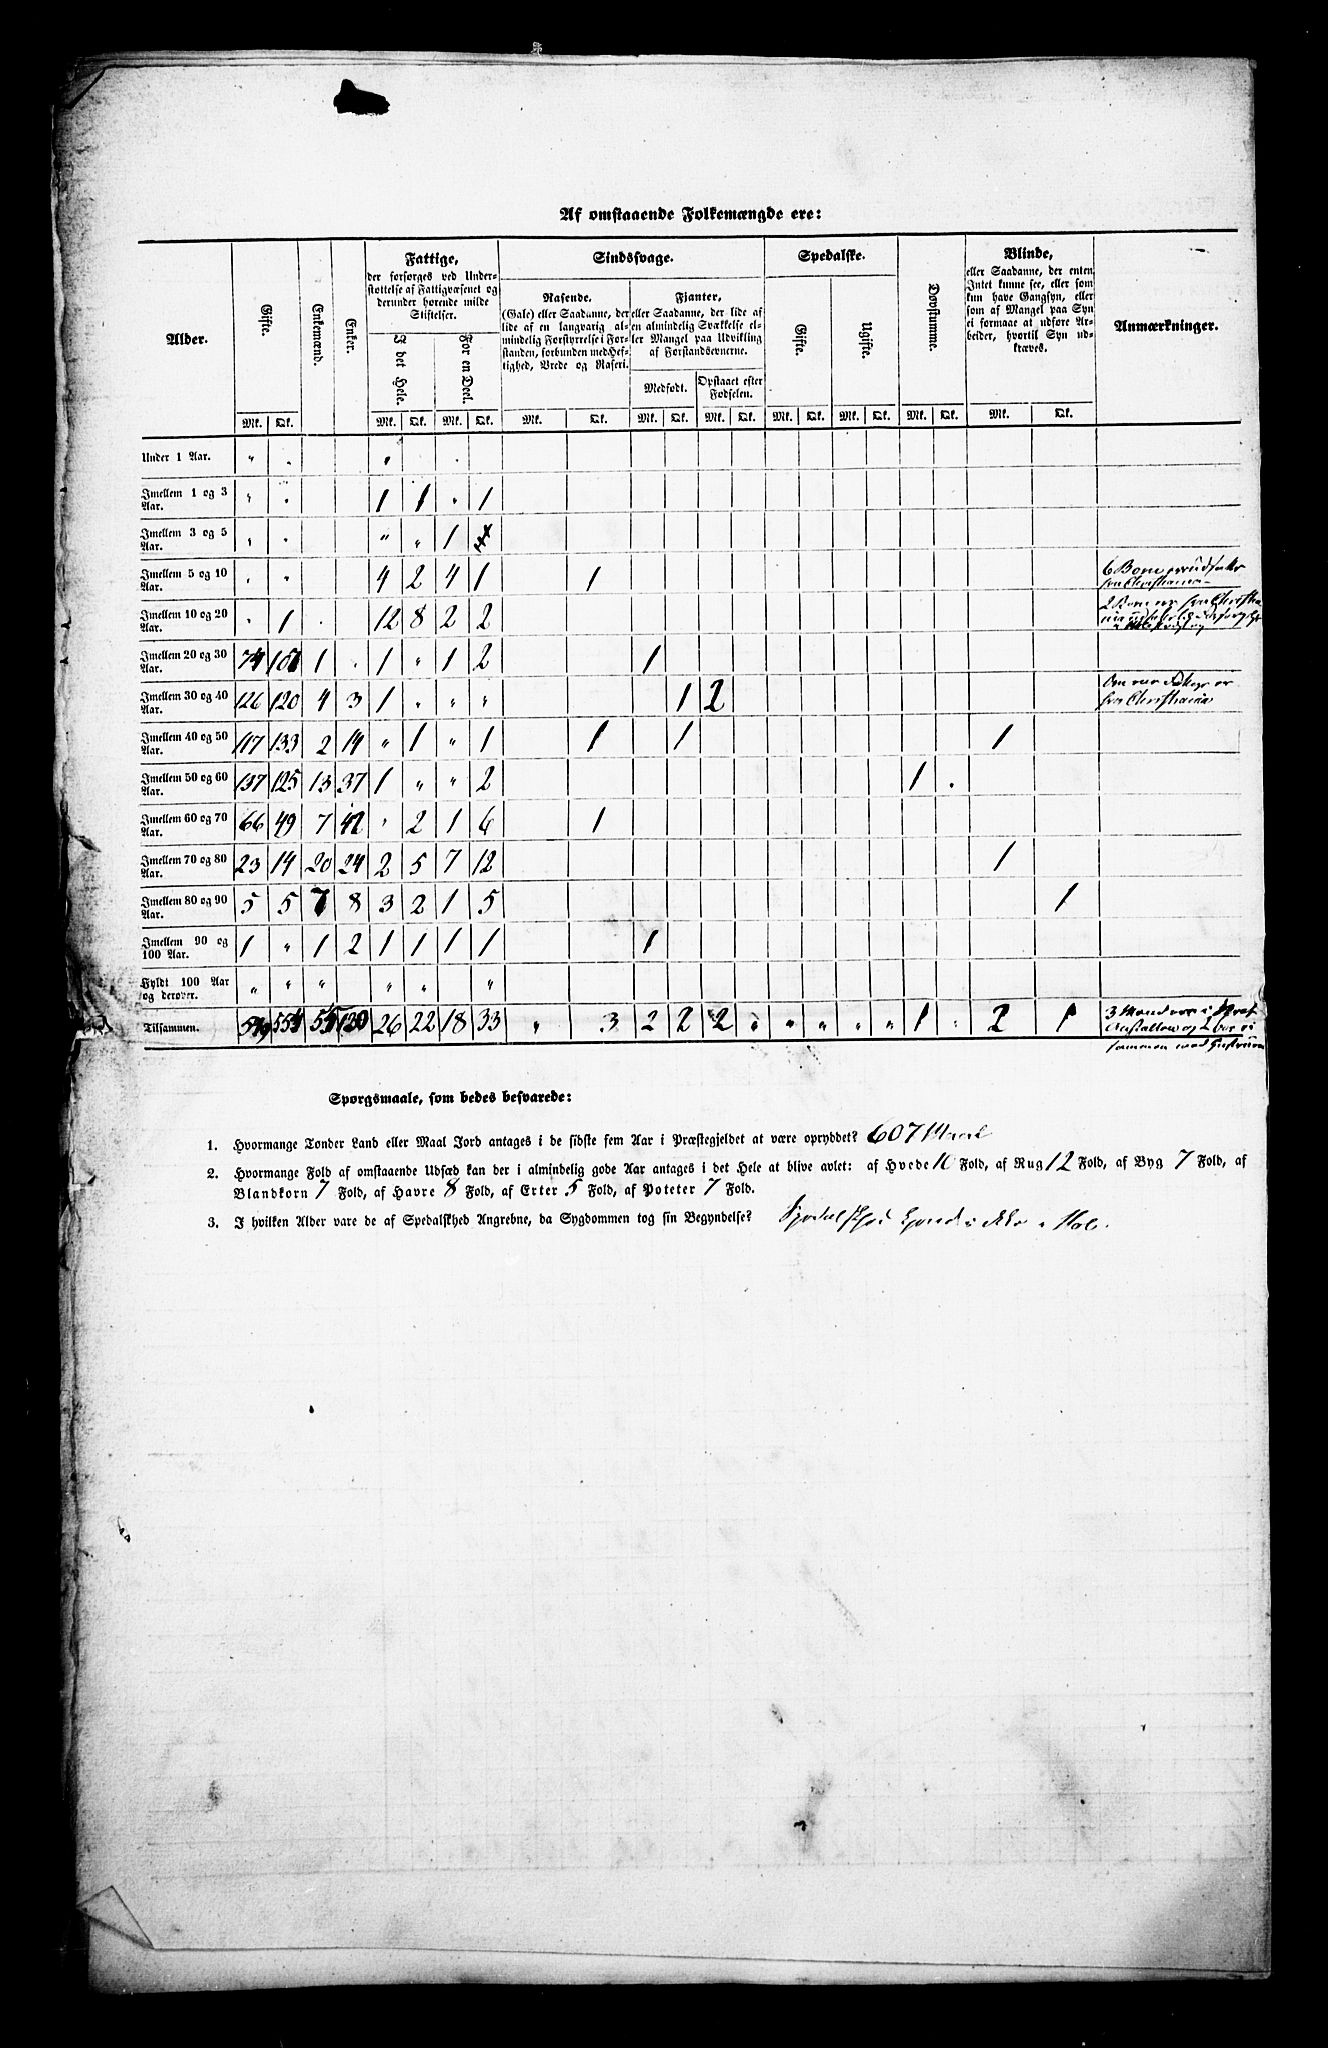 Af omstaaende Folkemængde ere:
Alder.
Gifte.
Enkemænd.
Enker.
Fattige,
der forsørges ved Under-
støttelse af Fattigvæsenet og
derunder hørende milde
Stiftelser.
I det Hele.
For en Deel.
Sindssvage.
Rasende.
(Gale) eller Saadanne, der
lide af en langvarig al-
mindelig Forstyrrelse i For-
standen, forbunden med Hef-
tighed, Vrede og Raseri.
Fjanter,
eller Saadanne, der lide af
en almindelig Svækkelse el-
ler Mangel paa Udvikling
af Forstandsevnerne.
Medfødt.
Opstaaet efter
Fødselen.
Spedalske.
Gifte.
Ugifte.
Døvstumme.
Blinde,
eller Saadanne, der enten
Intet kunne see, eller som
kun have Gangsyn, eller
som af Mangel paa Syn
ei formaae at udføre Ar-
beider, hvortil Syn ud-
kræves.
Anmærkninger.
Mk. Qk. Mk. Qk. Mk. Qk. Mk. Qk. Mk. Qk. Mk. Qk. Mk. Qk. Mk. Qk. Mk. Qk. Mk. Qk.
Under 1 Aar. " . " .
Imellem 1 og 3 Aar. " " 1 1 " 1
Imellem 3 og 5 Aar. " " " " 1
Imellem 5 og 10 Aar. " " 4 2 4 1 1 6 Børn
fra Christiania
Imellem 10 og 20 Aar. " 1 . 12 8 2 2 2 Børn er fra Christia
nia
Imellem 20 og 30 Aar. 1 . 1 " 1 2 1
Imellem 30 og 40 Aar. 126 120 4 3 1 " " " 1 2 Den ene er
fra Christiania
Imellem 40 og 50 Aar. 117 133 2 14 " 1 " 1 1 1 1
Imellem 50 og 60 Aar. 137 125 13 37 1 " " 2 1 .
Imellem 60 og 70 Aar. 66 49 7 42 " 2 1 6 1
Imellem 70 og 80 Aar. 23 14 20 24 2 5 7 12 1
Imellem 80 og 90 Aar. 5 5 7 8 3 2 1 5 1
Imellem 90 og 100 Aar. 1 " 1 2 1 1 1 1 1
Fyldt 100 Aar og derover. " " " " " "
Tilsammen. 549 554 55 130 26 22 18 33 " 3 2 2 2 " " " " " 1 " 2 1 3 Mænd var i
og 2 bor ei
sammen med
Spørgsmaale, som bedes besvarede:
1. Hvormange Tønder Land eller Maal Jord antages i de sidste fem Aar i Præstegjeldet at være opryddet? 607 Maal
2. Hvormange Fold af omstaaende Udsæd kan der i almindelig gode Aar antages i det Hele at blive avlet: af Hvede 10 Fold, af Rug 12 Fold, af Byg 7 Fold, af
Blandkorn 7 Fold, af Havre 8 Fold, af Erter 5 Fold, af Poteter 7 Fold.
3. I hvilken Alder vare de af Spedalskhed Angrebne, da Sygdommen tog sin Begyndelse? Spedalskhed ikke i Hole.